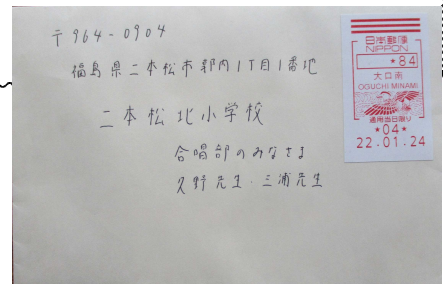 〒964-0904
福島県二本松市郭内1丁目1番地
二本松北小学校
合唱部のみなさま
久野先生・三浦先生
日本郵便
NIPPON
*84
大口南
OGUCHI MINAMI
適用当日限り
*04*
22.01.24